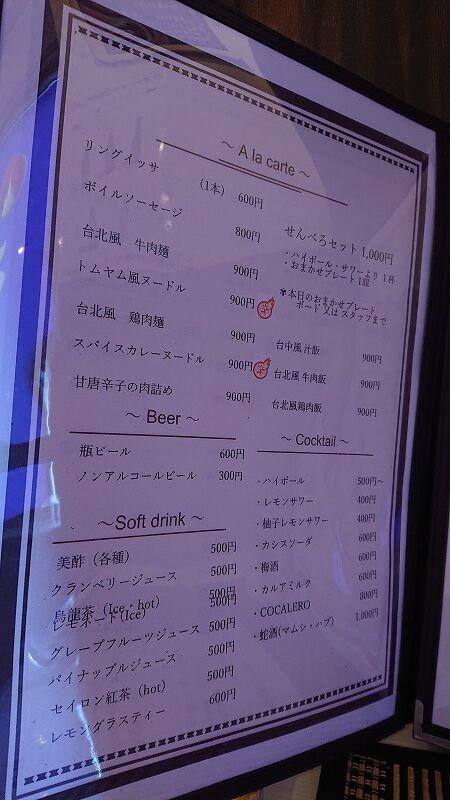 ～ A la carte ～
リングイッサ (1本) 600円
ボイルソーセージ 800円
台北風 牛肉麺 900円
トムヤム風ヌードル 900円 辛
台北風 鶏肉麺 900円
スパイスカレーヌードル 900円 辛
甘唐辛子の肉詰め 900円
せんべろセット 1,000円
・ハイボール・サワーより 1杯
・おまかせプレート 1皿
✾本日のおまかせプレート
ボード又は スタッフまで
台中風 汁飯 900円
台北風 牛肉飯 900円
台北風鶏肉飯 900円
～ Beer ～
瓶ビール 600円
ノンアルコールビール 300円
～Soft drink ～
美酢（各種） 500円
クランベリージュース 500円
烏龍茶（Ice・hot） 500円
レモネード(Ice) 500円
グレープフルーツジュース 500円
パイナップルジュース 500円
セイロン紅茶（hot） 500円
レモングラスティー 600円
～ Cocktail ～
・ハイボール 500円～
・レモンサワー 400円
・柚子レモンサワー 400円
・カシスソーダ 600円
・梅酒 600円
・カルアミルク 600円
・COCALERO 800円
・蛇酒(マムシ・ハブ) 1,000円